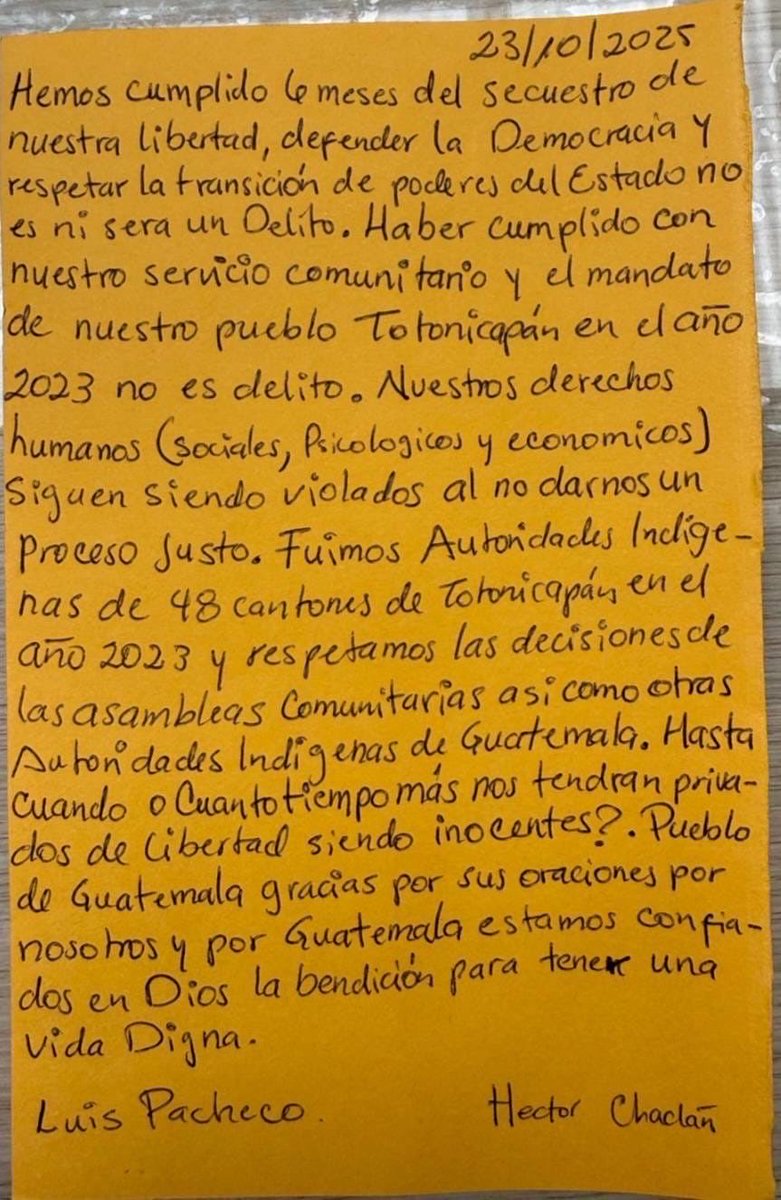 23/10/2025
Hemos cumplido 6 meses del secuestro de
nuestra libertad, defender la Democracia y
respetar la transición de poderes del Estado no
es ni sera un Delito. Haber cumplido con
nuestro servicio comunitario y el mandato
de nuestro pueblo Totonicapán en el año
2023 no es delito. Nuestros derechos
humanos (sociales, Psicologicos y economicos)
Siguen siendo violados al no darnos un
Proceso Justo. Fuimos Autoridades Indige-
nas de 48 cantones de Totonicapán en el
año 2023 y respetamos las decisiones de
las asambleas Comunitarias asi como otras
Autoridades Indigenas de Guatemala. Hasta
cuando o Cuanto tiempo más nos tendran priva-
dos de libertad siendo inocentes?. Pueblo
de Guatemala gracias por sus oraciones por
nosotros y por Guatemala estamos confia-
dos en Dios la bendición para tener una
vida Digna.
Luis Pacheco. Hector Chaclañ